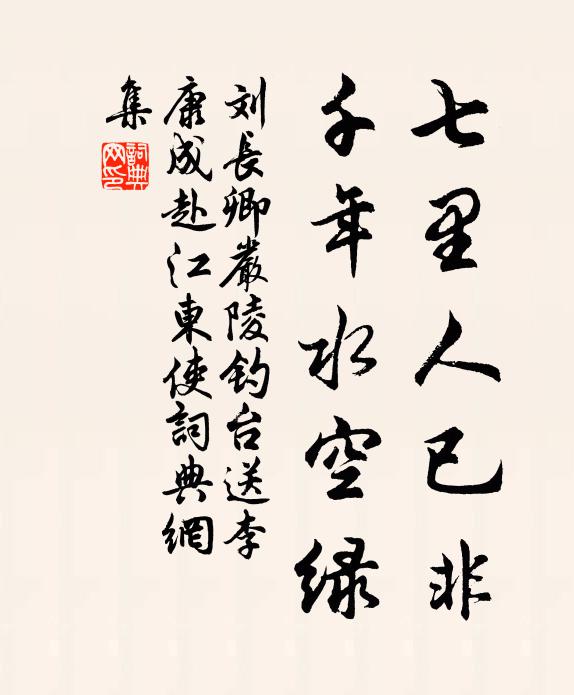 七里人已非
千年水空緑
刘長卿嚴陵钓台送李
康成赴江東使詞典網
集
詞典
网印